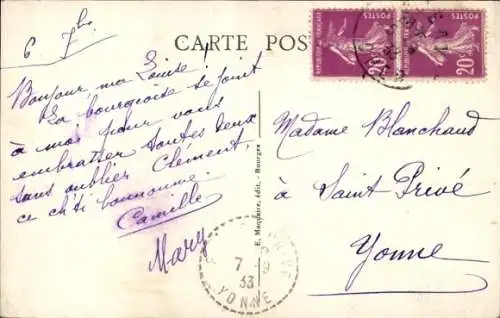 6 7bre
CARTE POS
Bonjour, ma Louise!
La bourgeoise se joint
à moi pour vous
embrasser toutes deux
sans oublier Clément,
ce ch'ti bonhomme.
Camille
Mary
E. Maquaire, édit. - Bourges
REPUBLIQUE FRANÇAISE
POSTES
20c
POSTES
20c
Madame Blanchard
à Saint Privé
Yonne
PRIVE
7
33
YONNE